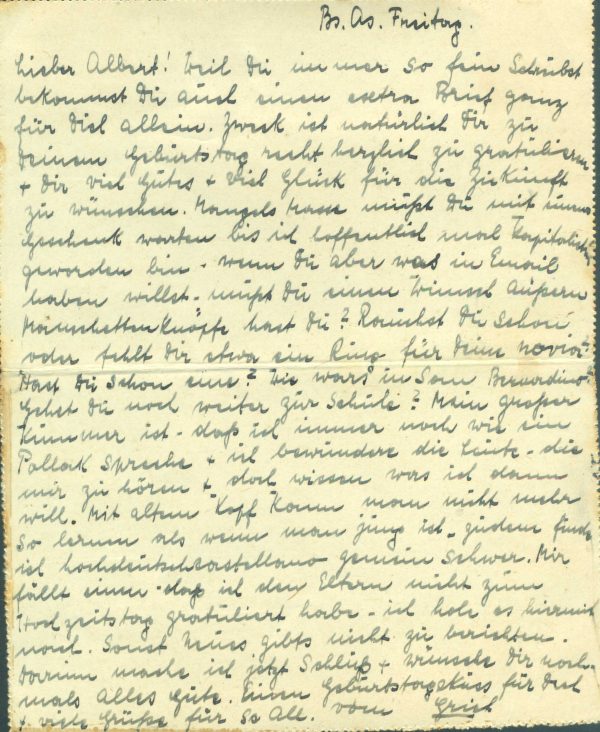 Bs. As. Freitag.
Lieber Albert! Weil Du immer so fein Schreibst
bekommst Du auch einen extra Brief ganz
für Dich allein. Zweck ist natürlich Dir zu
Deinem Geburtstag recht herzlich zu gratulieren
+ Dir viel Gutes + Viel Glück für die Zukunft
zu wünschen. Mangels Masse müßt Du mit einem
Geschenk warten bis ich hoffentlich mal Kapitalistin
geworden bin - wenn Du aber was in Email
haben willst - mußt Du einen Wunsch äußern
Manschettenknöpfe hast Du? Rauchst Du Schon,
oder fehlt Dir etwa ein Ring für Deine novia?
Hast Du Schon eine? Wie wars in San Bernardino?
Gehst Du noch weiter zur Schule? Mein großer
Kummer ist - daß ich immer noch wie ein
Pollack Spreche + ich bewundere die Leute - die
mir zu hören + doch wissen was ich dann
will. Mit altem Kopf kann man nicht mehr
So lernen als wenn man jung ist - zudem finde
ich hochdeutschcastellano gemein Schwer. Mir
fällt einn - daß ich den Eltern nicht zum
Hochzeitstag gratuliert habe - ich hole es hiermit
nach. Sonst Neues gibts nicht zu berichten -
darum mache ich jetzt Schluß + wünsche Dir noch-
mals Alles Gute. Einen Geburtstagskuss für Dich
+ viele Grüße für Se All. vom